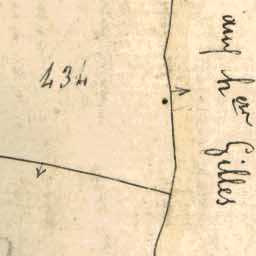 434
aux hers Gilles